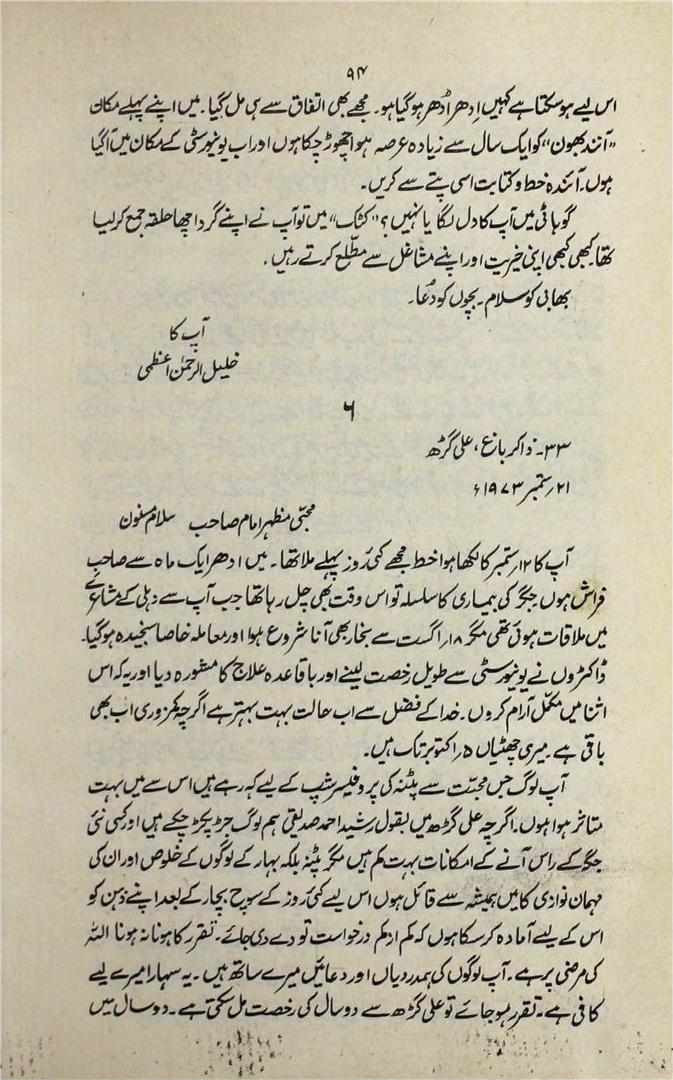 ۹۴
اس لیے ہو سکتا ہے کہیں اِدھر اُدھر ہو گیا ہو۔ مجھے بھی اتفاق سے ہی مل گیا۔ میں اپنے پہلے مکان
”آنند بھون“ کو ایک سال سے زیادہ عرصہ ہوا چھوڑ چکا ہوں اور اب یونیورسٹی کے مکان میں آگیا
ہوں۔ آئندہ خط و کتابت اسی پتے سے کریں۔
گوہاٹی میں آپ کا دل لگا یا نہیں؟ ”کٹک“ میں تو آپ نے اپنے گرد اچھا حلقہ جمع کر لیا
تھا۔ کبھی کبھی اپنی خیریت اور اپنے مشاغل سے مطلع کرتے رہیں۔
بھابی کو سلام۔ بچوں کو دُعا۔
آپ کا
خلیل الرحمٰن اعظمی
۶
۳۳۔ ذاکر باغ، علی گڑھ
۲۱؍ ستمبر ۱۹۷۳ء
محبّی مظہر امام صاحب سلام مسنون
آپ کا ۱۲؍ ستمبر کا لکھا ہوا خط مجھے کئی روز پہلے ملا تھا۔ میں ادھر ایک ماہ سے صاحبِ
فراش ہوں جگر کی بیماری کا سلسلہ تو اس وقت بھی چل رہا تھا جب آپ سے دہلی کے مشاعرے
میں ملاقات ہوئی تھی مگر ۱۸؍ اگست سے بخار بھی آنا شروع ہوا اور معاملہ خاصا سنجیدہ ہو گیا۔
ڈاکٹروں نے یونیورسٹی سے طویل رخصت لینے اور باقاعدہ علاج کا مشورہ دیا اور یہ کہ اس
اثنا میں مکمّل آرام کروں۔ خدا کے فضل سے اب حالت بہت بہتر ہے اگرچہ کمزوری اب بھی
باقی ہے۔ میری چھٹیاں ۵؍ اکتوبر تک ہیں۔
آپ لوگ جس محبّت سے پٹنہ کی پروفیسر شپ کے لیے کہہ رہے ہیں اس سے میں بہت
متاثر ہوا ہوں۔ اگرچہ علی گڑھ میں بقول رشید احمد صدیقی ہم لوگ جڑ پکڑ چکے ہیں اور کسی نئی
جگہ کے راس آنے کے امکانات بہت کم ہیں مگر پٹنہ بلکہ بہار کے لوگوں کے خلوص اور ان کی
مہمان نوازی کا میں ہمیشہ سے قائل ہوں اس لیے کئی روز کے سوچ بچار کے بعد اپنے ذہن کو
اس کے لیے آمادہ کر سکا ہوں کہ کم از کم درخواست تو دے دی جائے۔ تقرر کا ہونا نہ ہونا اللہ
کی مرضی پر ہے۔ آپ لوگوں کی ہمدردیاں اور دعائیں میرے ساتھ ہیں۔ یہ سہارا میرے لیے
کافی ہے۔ تقرر ہو جائے تو علی گڑھ سے دو سال کی رخصت مل سکتی ہے۔ دو سال میں